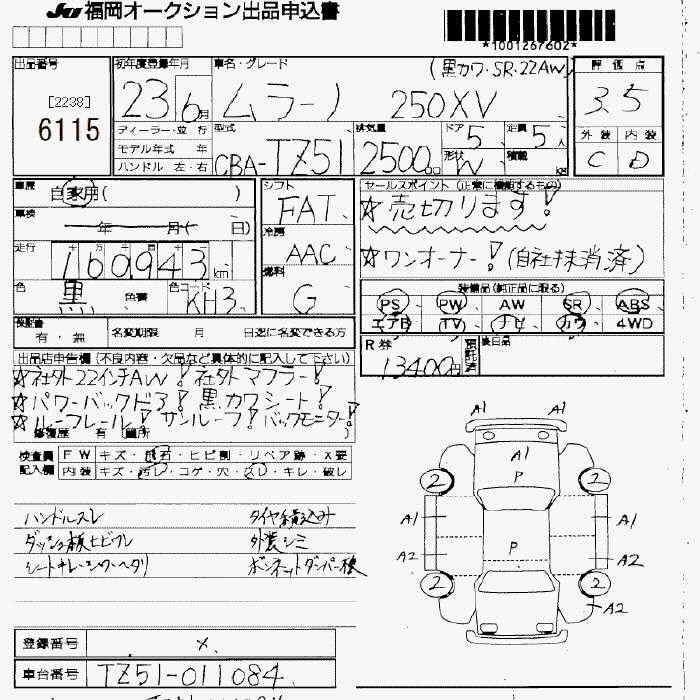 JU 福岡オークション出品申込書
*1001267602*
出品番号 初年度登録年月 車名・グレード (黒カワ・SR・22AW) 評価点
[2238]
6115
23 6月 ムラーノ 250XV 3.5
ディーラー・並行 型式 排気量 ドア 定員 外装 内装
モデル年式 年 CBA-TZ51 2500cc 5 5人 C D
ハンドル 左・右 形状 W 積載 kg
車歴 自家用( ) シフト セールスポイント(正常に機能するもの)
FAT ☆売切ります!
車検 年 月( 日) 冷房
走行 160943km AAC ☆ワンオーナー!(自社抹消済)
燃料 装備品(純正品に限る)
色 黒 色替 色コード KH3 G PS PW AW SR ABS
エアB TV ナビ カワ 4WD
保証書 有・無 名変期限 月 日迄に名変できる方 R券 13400円 預託済 後日品
出品店申告欄(不良内容・欠品など具体的に記入して下さい)
☆社外22インチAW! 社外マフラー!
☆パワーバックドア! 黒カワシート!
☆ルーフレール! サンルーフ! バックモニター!
修復歴 有 (箇所 )
検査員 FW キズ・飛石・ヒビ割・リペア跡・X要
記入欄 内装 キズ・汚レ・コゲ・穴・スレ・キレ・破レ
A1 A1
A1
P
2 2
A1 A1
P
A2 A2
2 2
A2
ハンドルスレ タイヤ積込み
ダッシュ板ヒビワレ 外装シミ
シートキレ・シワ・ヘタリ ボンネットダンパー欠
登録番号 ×
車台番号 TZ51-011084